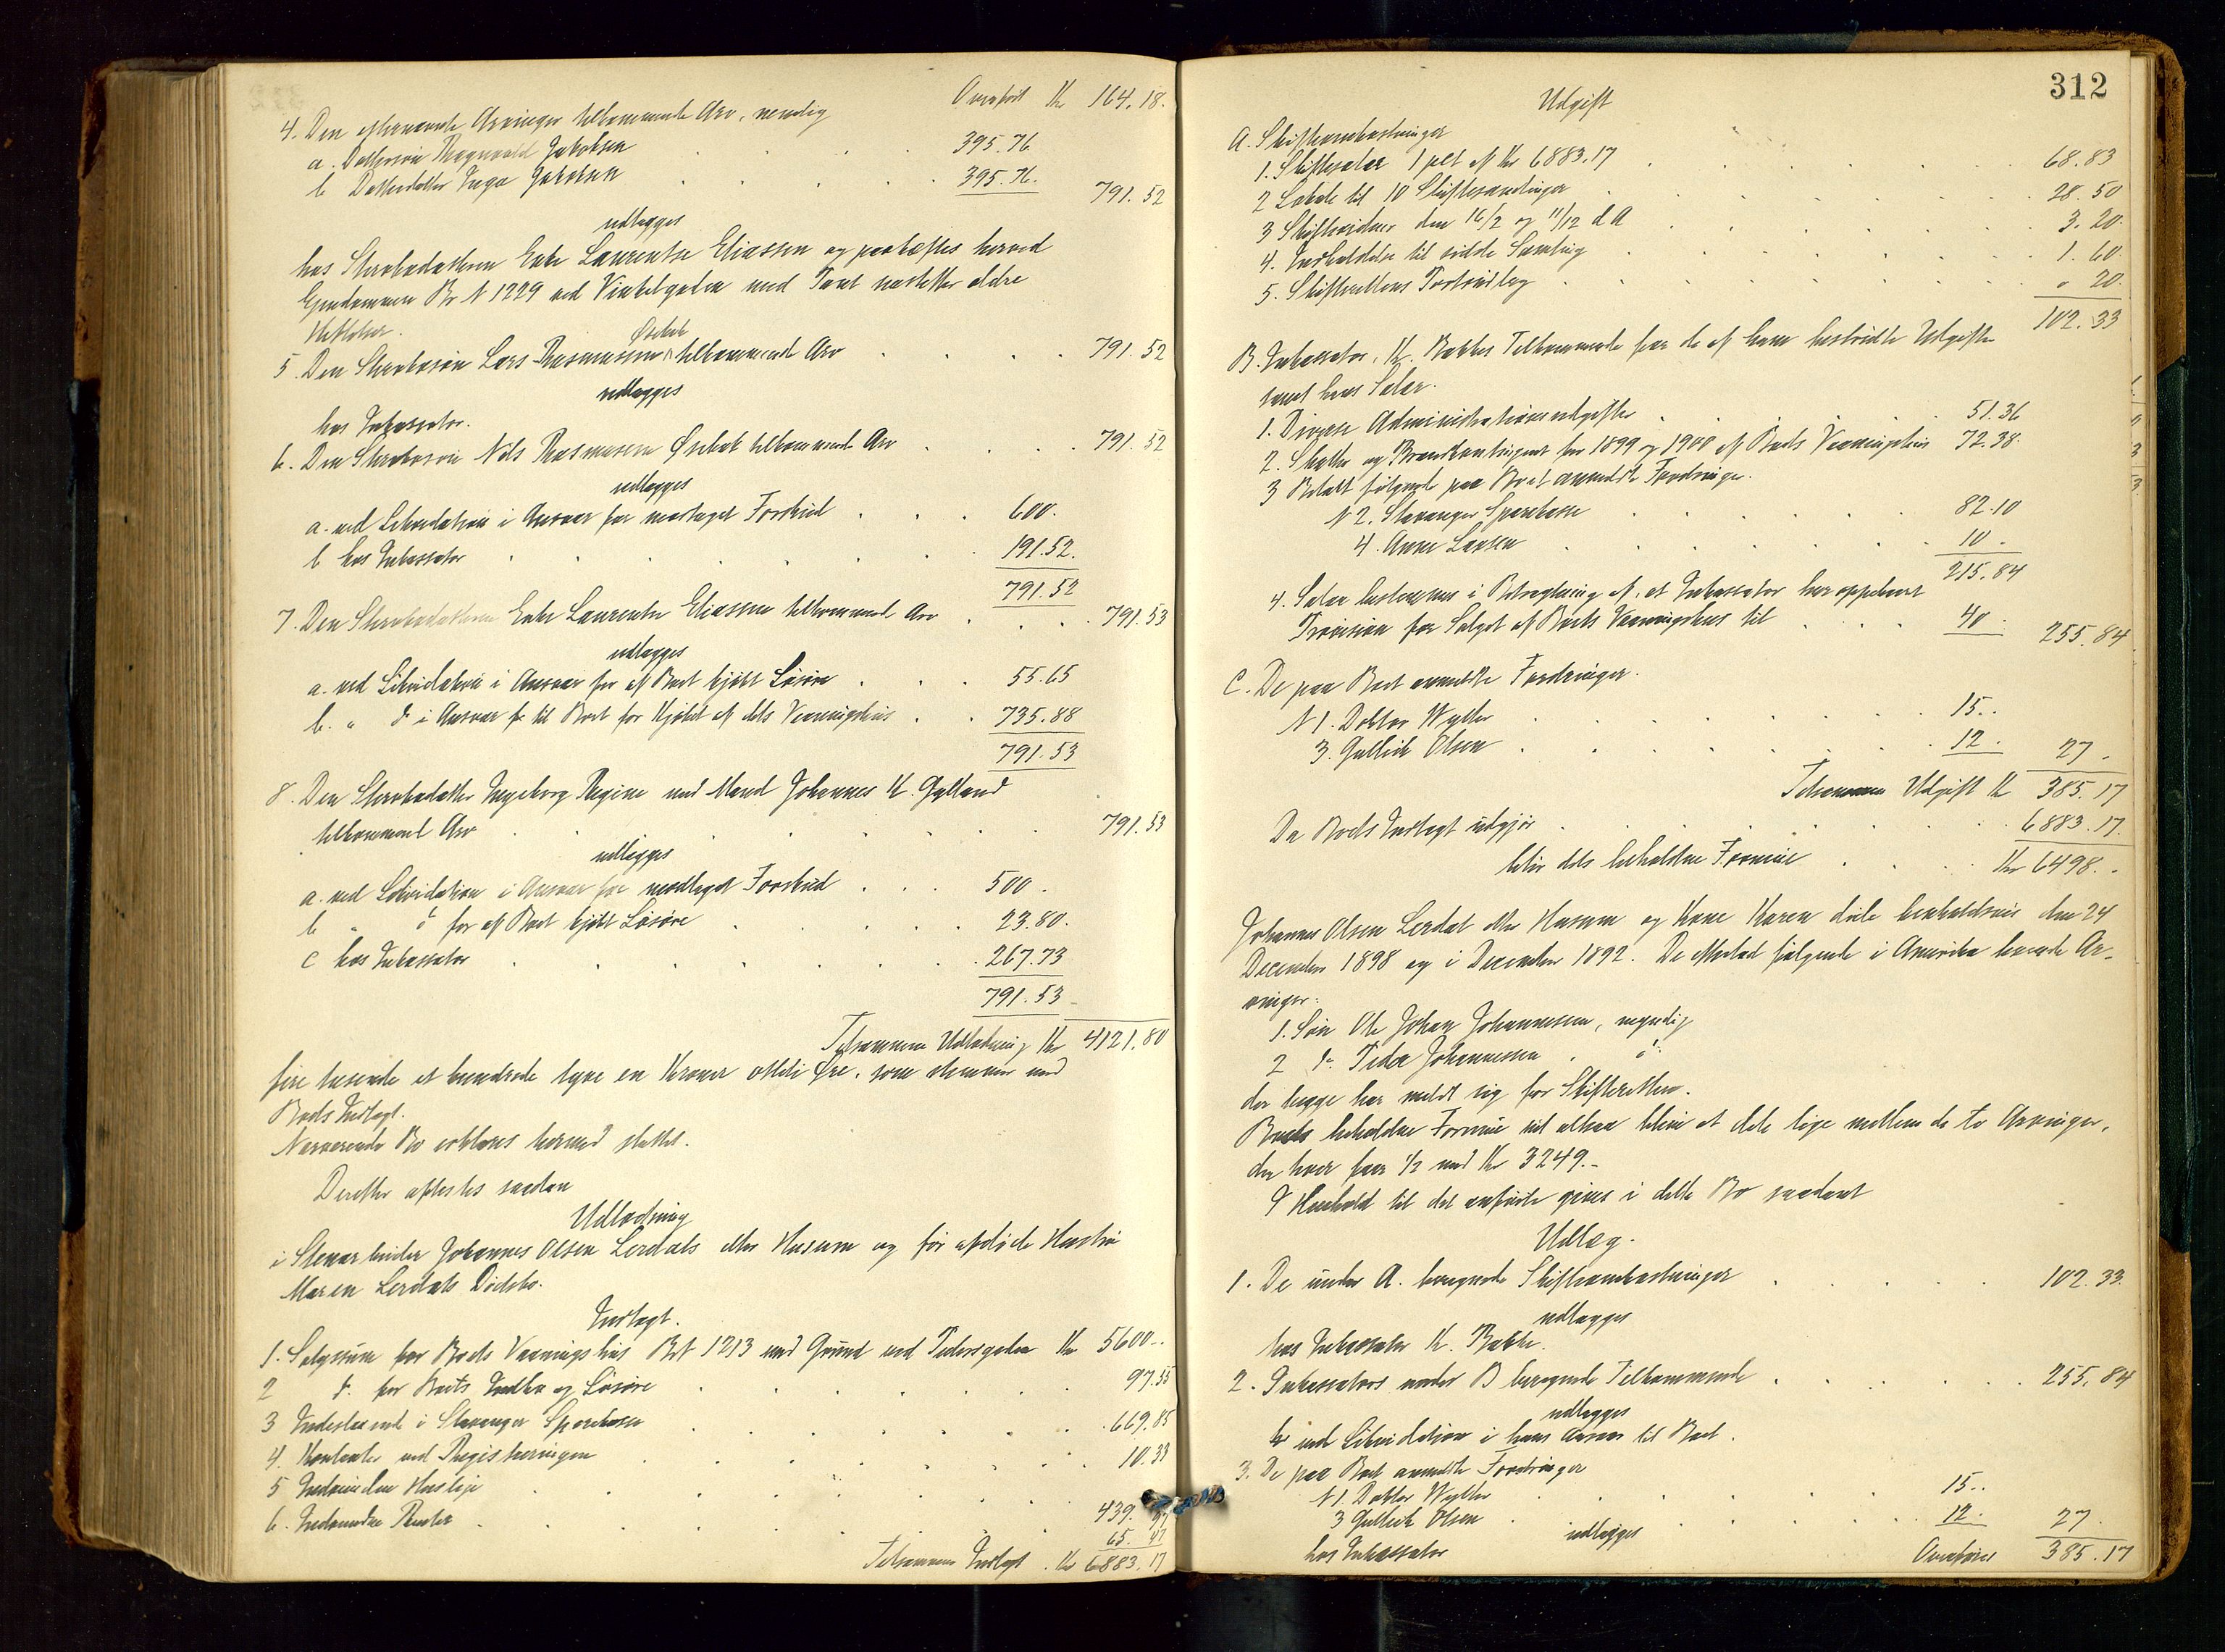 Overført Kr 164.18.
4. Den efternævnte Arvinger tilkommende Arv, nemlig
a. Dattersøn Ragnvald Jakobsen 395.76
b Datterdatter Inga Jakobsen 395.76. 791.52
udlægges
hos Sterbodatteren Enke Laurentse Eliassen og paahæftes herved
Eiendommen Br N 1229 ved Vinkelgaden med Pant næstefter ældre
Hæftelser.
5. Den Sterbosøn Lars Rasmussen Østbøe tilkommende Arv 791.52
udlægges
hos Inkassator.
6. Den Sterbosøn Nils Rasmussen tilkommende Arv 791.52
udlægges
a. ved Likvidation i Ansvar for modtaget Forskud 600.
b hos Inkassator 191.52.
791.52
7. Den Sterbodatteren Enke Laurentse Eliassen tilkommende Arv 791.53
udlægges
a. ved Likvidation i Ansvar for af Boet kjøbt Løsøre 55.65
b. " do i Ansvar til Boet for Kjøbet af dets Vaaningshus 735.88
791.53
8. Den Sterbodatter Ingeborg Regine med Mand Johannes K. Gylland
tilkommende Arv 791.53
udlægges
a. ved Likvidation i Ansvar for modtaget Forskud 500.
b " do for af Boet kjøbt Løsøre 23.80.
c hos Inkassator 267.73
791.53
Tilsammen Udlodning Kr 4121.80
fire tusende et hundrede tyve en Kroner otteti Øre, som stemmer med
Boets Indtægt.
Nærværende Bo erklæres hermed sluttet.
Derefter afsluttes saadan
Udlodning
i Stenarbeider Johannes Olsen Lerdals eller Husum og før afdøde Hustru
Maren Lerdals Dødsbo.
Indtægt.
1. Salgssum for Boets Vaaningshus Br N 1213 med Grund ved Pedersgaden Kr 5600..
2 do for Boets Indbo og Løsøre 97.55
3 Indestaaende i Stavanger Sparekasse 669.85
4. Kontanter ved Registreringen 10.33
5 Indvunden Husleje 439.
6. Indvundne Renter 65. 47
Tilsammen Indtægt Kr 6883.17
312
Udgift
A. Skifteomkostninger
1. Skiftesalær 1 pct af Kr 6883.17 68.83
2 Lokale til 10 Skiftesamlinger 28.50
3 Skiftevidner den 16/2 og 11/12 d A 3.20.
4. Indkaldelse til sidste Samling 1.60.
5. Skifterettens Portoudlæg " 20.
102.33
B. Inkassator, K. Bakkes Tilkommende for de af ham bestridte Udgifter
samt hans Salær.
1. Diverse Administrationsudgifter 51.36
2. Skatter og Brandkontingent for 1899 og 1900 af Boets Vaaningshus 72.38.
3 Betalt følgende paa Boet anmeldte Fordringer.
N 2. Stavanger Sparekasse 82.10
4. Anne Larsen 10.
215.84
4. Salær bestemmes i Betragtning af, at Inkassator har oppebaaret
Provision for Salget af Boets Vaaningshus til 40. 255.84
C. De paa Boet anmeldte Fordringer.
N 1. Doktor Wyller 15..
3. Gullick Olsen 12. 27.
Tilsammen Udgift Kr 385.17
Da Boets Indtægt udgjør 6883.17.
bliver dets beholdne Formue Kr 6498..
Johannes Olsen Lerdal eller Husum og Kone Maren døde henholdsvis den 24
December 1898 og i December 1892. De efterlod følgende i Amerika boende Ar-
vinger:
1. Søn Ole Johan Johannessen, myndig
2 do Peder Johannessen, do
der begge har meldt sig for Skifteretten.
Boets beholdne Formue vil altsaa blive at dele lige mellem de to Arvinger,
der hver faar 1/2 med Kr 3249.-
I Henhold til det anførte gives i dette Bo saadant
Udlæg.
1. De under A. beregnede Skifteomkostninger 102.33.
udlægges
hos Inkassator K. Bakke.
2. Inkassators under B beregnede Tilkommende 255.84
udlægges
ved Likvidation i hans Ansvar til Boet.
3. De paa Boet anmeldte Fordringer
N 1. Doktor Wyller 15..
3 Gullick Olsen 12. 27.
udlægges
hos Inkassator Overføres 385.17